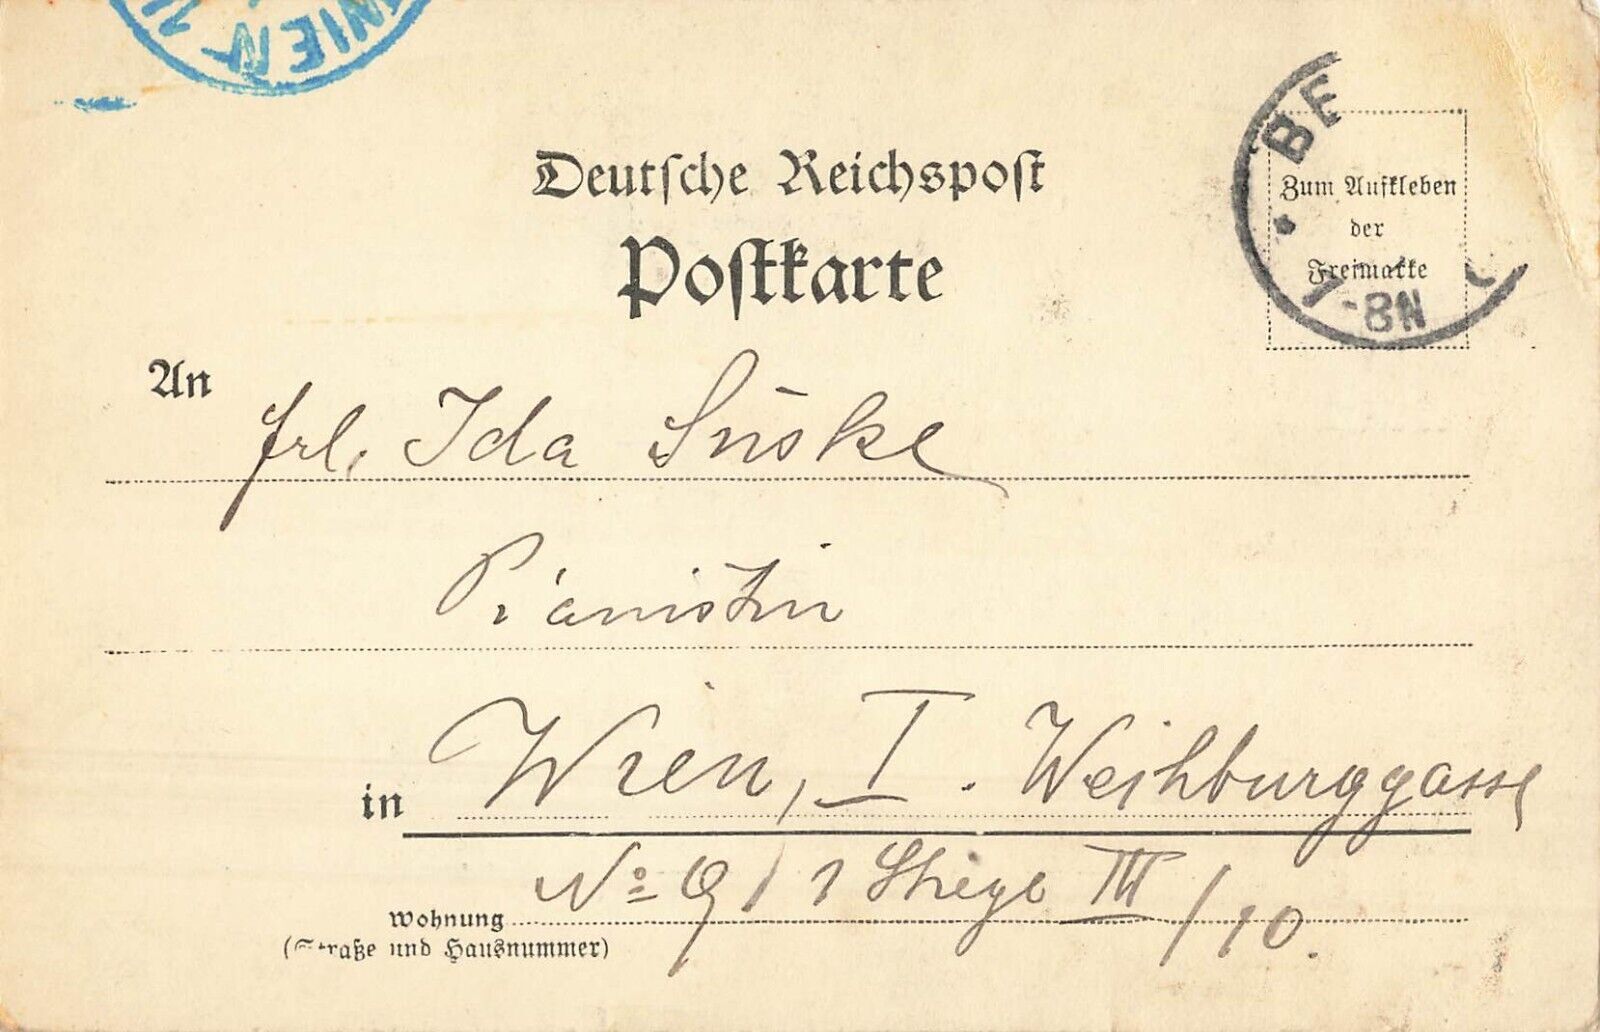 WIEN 1/
Deutsche Reichspost
Postkarte
BE
Zum Aufkleben
der
Freimarke
7-8N
An
Frl. Ida Süske
Pianistin
in Wien, I. Weihburggasse
No 9 / 1 Stiege III / 10.
Wohnung
(Straße und Hausnummer)